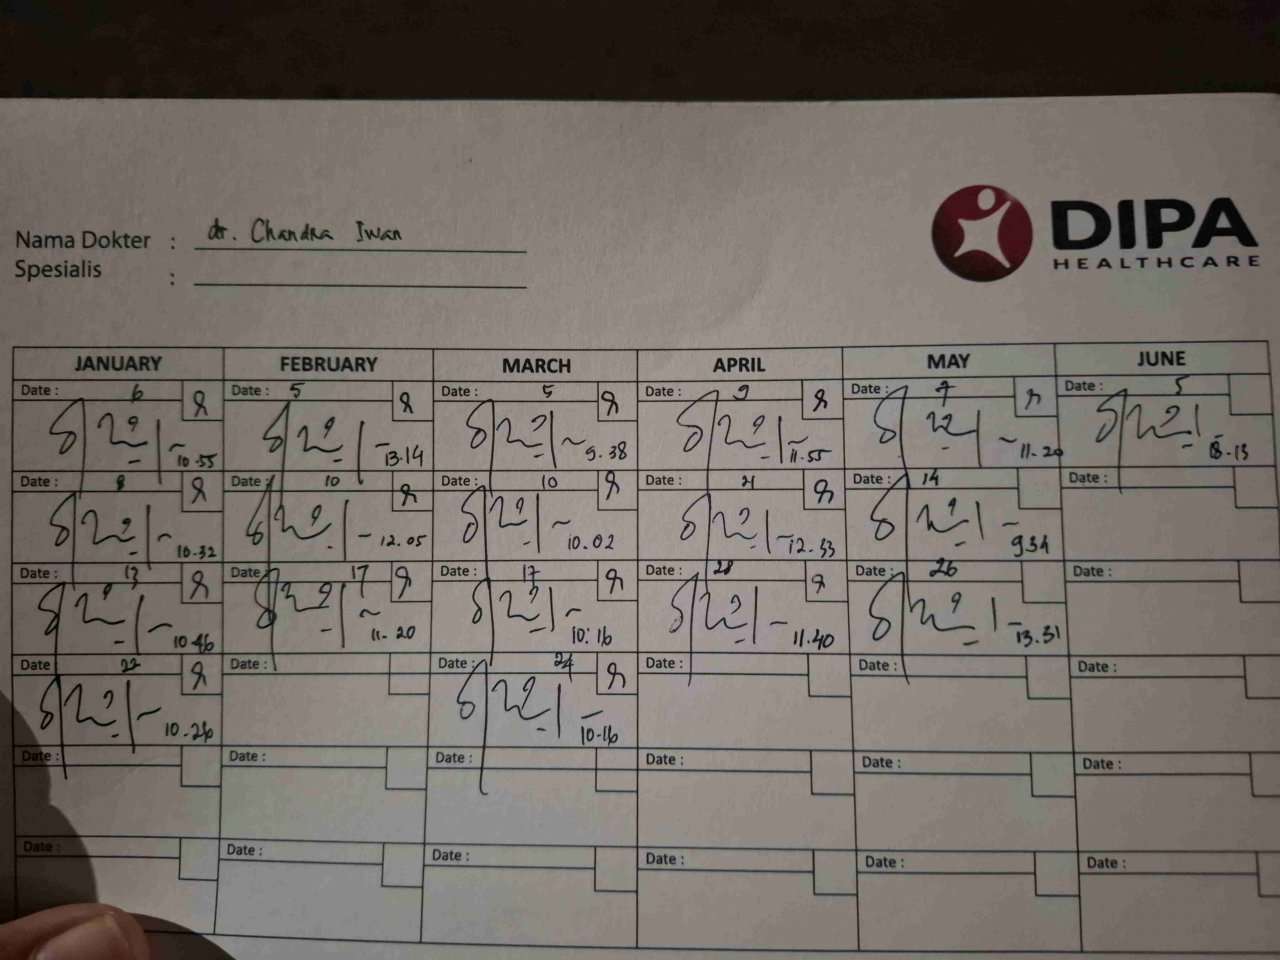 DIPA
HEALTHCARE
Nama Dokter : dr. Chandra Iwan
Spesialis :
JANUARY FEBRUARY MARCH APRIL MAY JUNE
Date : 6 Date : 5 Date : 5 Date : 9 Date : 7 Date : 5
10.55 13.14 9.38 11.55 11.20
Date : 8 Date : 10 Date : 10 Date : 21 Date : 14 Date :
10.32 12.05 10.02 12.33 9.34
Date : 13 Date : 17 Date : 17 Date : 28 Date : 26 Date :
10.46 11.20 10:16 11.40 13.31
Date 22 Date : Date : 24 Date : Date : Date :
10.26 10.16
Date : Date : Date : Date : Date : Date :
Date : Date : Date : Date : Date : Date :